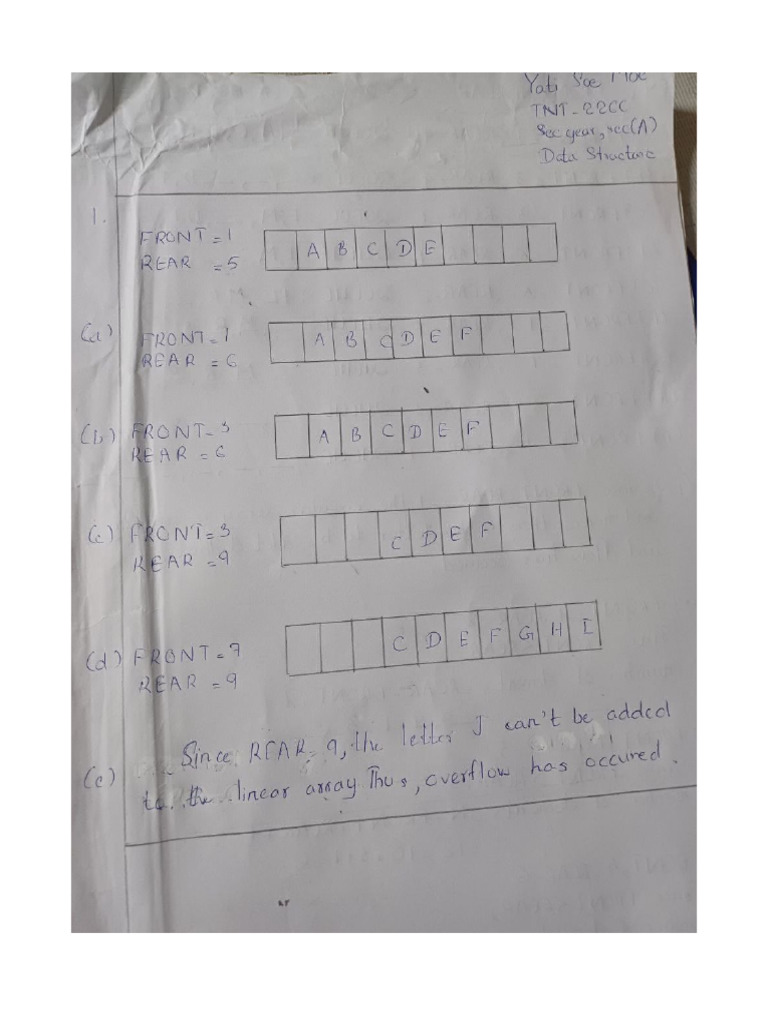 Yati Soe Moe
TNT-22CC
Sec year, sec(A)
Data Structure
1.
FRONT=1
REAR =5
A B C D E
(a)
FRONT=1
REAR =6
A B C D E F
(b) FRONT=3
REAR =6
A B C D E F
(c) FRONT=3
REAR =9
C D E F
(d) FRONT=7
REAR =9
C D E F G H I
(e) Since REAR= 9, the letter J can't be added
to the linear array Thus, overflow has occured.